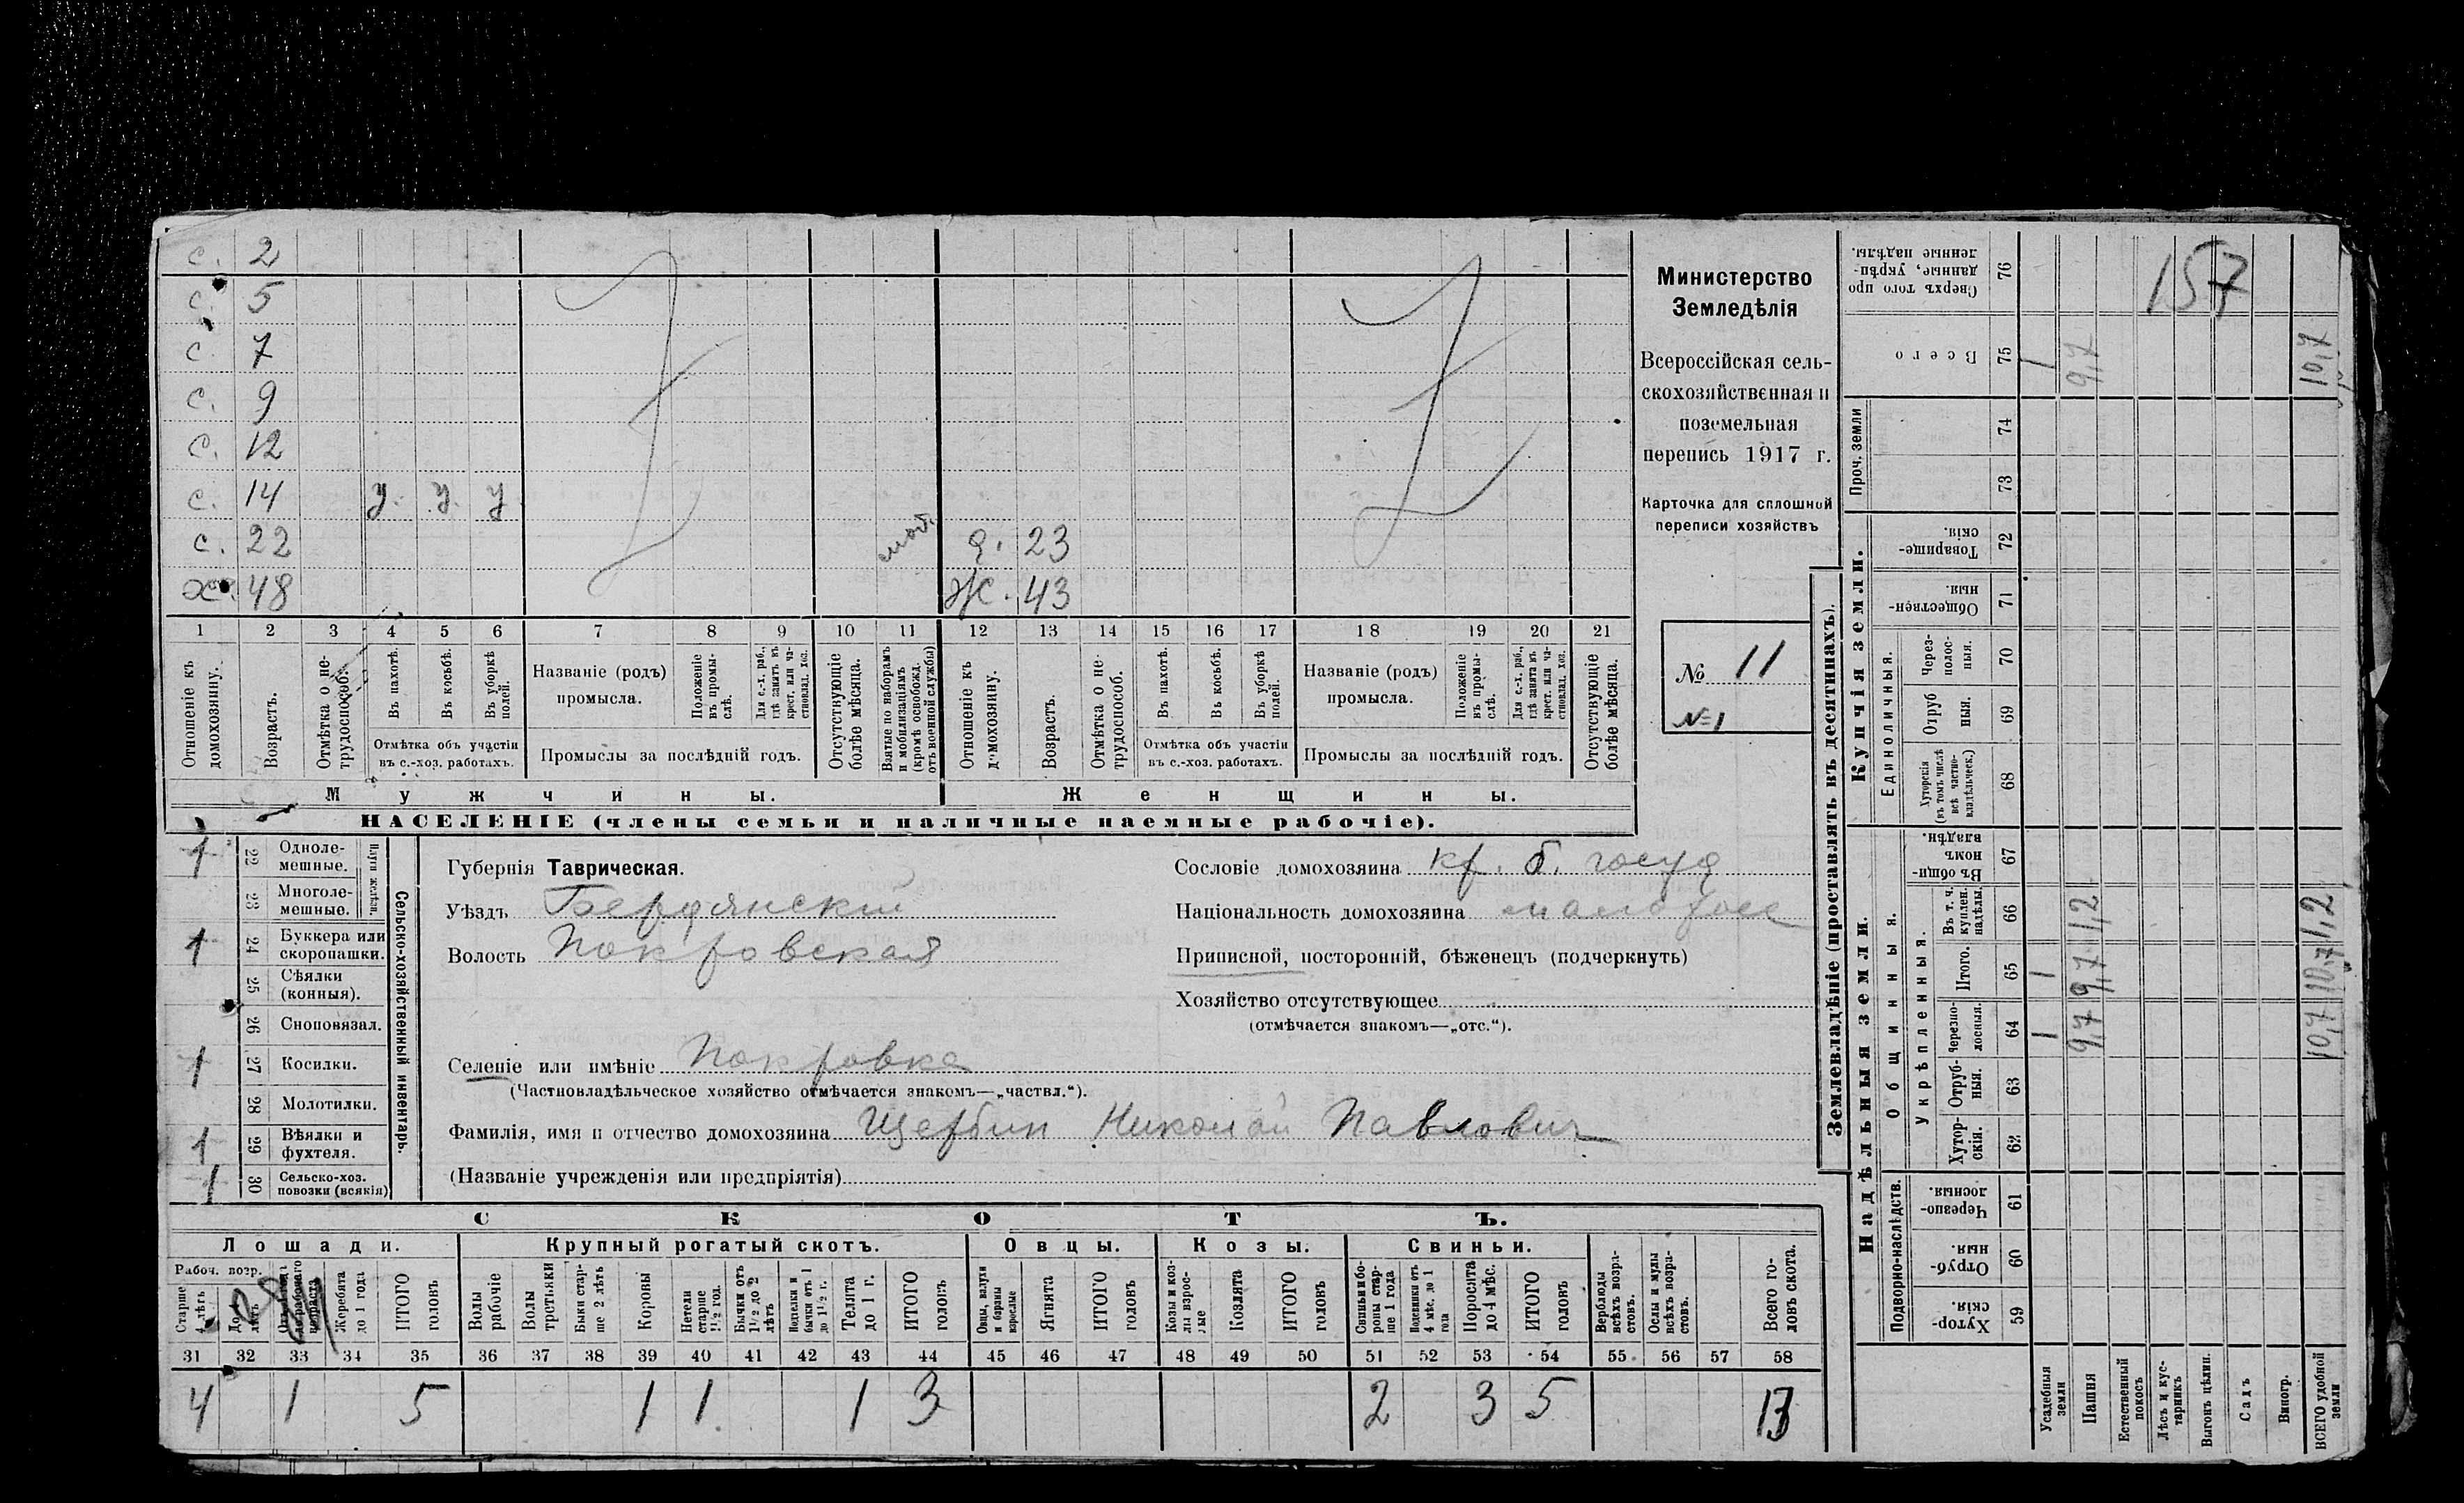 с. 2
с. 5
с. 7
с. 9
с. 12
с. 14 у. у. у
с. 22 моб. д. 23
х. 48 Ж. 43
1 2 3 4 5 6 7 8 9 10 11 12 13 14 15 16 17 18 19 20 21
Отношеніе къ домохозяину.
Возрастъ.
Отмѣтка о не-трудоспособ.
Въ пахотѣ.
Въ косьбѣ.
Въ уборкѣ полей.
Отмѣтка объ участіи
въ с.-хоз. работахъ.
Названіе (родъ)
промысла.
Положеніе въ промы-слѣ.
Для с.-х. раб., гдѣ занятъ въ крест. или ча-стновлад. хоз.
Промыслы за послѣдній годъ.
Отсутствующіе болѣе мѣсяца.
Взятые по наборамъ и мобилизаціямъ (кромѣ освобожд. отъ военной службы)
Отношеніе къ домохозяину.
Возрастъ.
Отмѣтка о не-трудоспособ.
Въ пахотѣ.
Въ косьбѣ.
Въ уборкѣ полей.
Отмѣтка объ участіи
въ с.-хоз. работахъ.
Названіе (родъ)
промысла.
Положеніе въ промы-слѣ.
Для с.-х. раб., гдѣ занята въ крест. или ча-стновлад. хоз.
Промыслы за послѣдній годъ.
Отсутствующіе болѣе мѣсяца.
Мужчины.
Женщины.
НАСЕЛЕНІЕ (члены семьи и наличные наемные рабочіе).
Министерство
Земледѣлія
Всероссійская сель-
скохозяйственная и
поземельная
перепись 1917 г.
Карточка для сплошной
переписи хозяйствъ
№ 11
№1
1 22 Одноле-мешные.
23 Многоле-мешные.
Плуги желѣзн.
1 24 Буккера или скоропашки.
25 Сѣялки (конныя).
26 Сноповязал.
1 27 Косилки.
28 Молотилки.
1 29 Вѣялки и фухтеля.
1 30 Сельско-хоз. повозки (всякія)
Сельско-хозяйственный инвентарь.
Губернія Таврическая.
Уѣздъ Бердянскій
Волость Покровская
Сословіе домохозяина кр. б. госуд
Національность домохозяина малоросс
Приписной, посторонній, бѣженецъ (подчеркнуть)
Хозяйство отсутствующее
(отмѣчается знакомъ—„отс.“).
Селеніе или имѣніе Покровка
(Частновладѣльческое хозяйство отмѣчается знакомъ—„частвл.“).
Фамилія, имя и отчество домохозяина Щербин Николай Павлович
(Названіе учрежденія или предпріятія)
СКОТЪ.
Лошади. Крупный рогатый скотъ. Овцы. Козы. Свиньи.
Рабоч. возр.
Жеребята до 1 года
ИТОГО головъ
Волы рабочіе
Волы третьяки
Быки стар-ше 2 лѣтъ
Коровы
Нетели старше 1½ год.
Бычки отъ 1½ до 2 лѣтъ
Нетелки и бычки отъ 1 до 1½ г.
Телята до 1 г.
ИТОГО головъ
Овцы, валухи и бараны взрослые
Ягнята
ИТОГО головъ
Козы и коз-лы взрос-лые
Козлята
ИТОГО головъ
Свиньи и бо-ровы стар-ше 1 года
Подсвинки отъ 4 мѣс. до 1 года
Поросята до 4 мѣс.
ИТОГО головъ
Верблюды всѣхъ возра-стовъ.
Ослы и мулы всѣхъ возра-стовъ.
Всего го-ловъ скота.
31 32 33 34 35 36 37 38 39 40 41 42 43 44 45 46 47 48 49 50 51 52 53 54 55 56 57 58
4 1 5 1 1 1 3 2 3 5 13
Землевладѣніе (проставлять въ десятинахъ).
Купчія земли.
Надѣльныя земли.
Сверхъ того про-данные, укрѣп-ленные надѣлы. 76
157
Всего 75 1 9,7 10,7
Проч. земли 74 73
Товарище-скія. 72
Обществен-ныя. 71
Единоличныя.
Через-полос-ныя. 70
Отруб-ныя. 69
Хуторскія (въ томъ числѣ всѣ частно-владѣльческ.) 68
Общинныя.
Въ общи-номъ владѣн. 67
Укрѣпленныя.
Въ т. ч. куплен. надѣлы. 66 1,2 1,2
Итого. 65 1 9,7 10,7
Черезпо-лосныя. 64 1 9,7 10,7
Отруб-ныя. 63
Хутор-скія. 62
Подворно-наслѣдств.
Черезпо-лосныя. 61
Отруб-ныя. 60
Хутор-скія. 59
Усадебныя земли
Пашня
Естественный покосъ
Лѣсъ и кус-тарникъ
Выгонъ цѣлин.
Садъ
Виногр.
ВСЕГО удобной земли